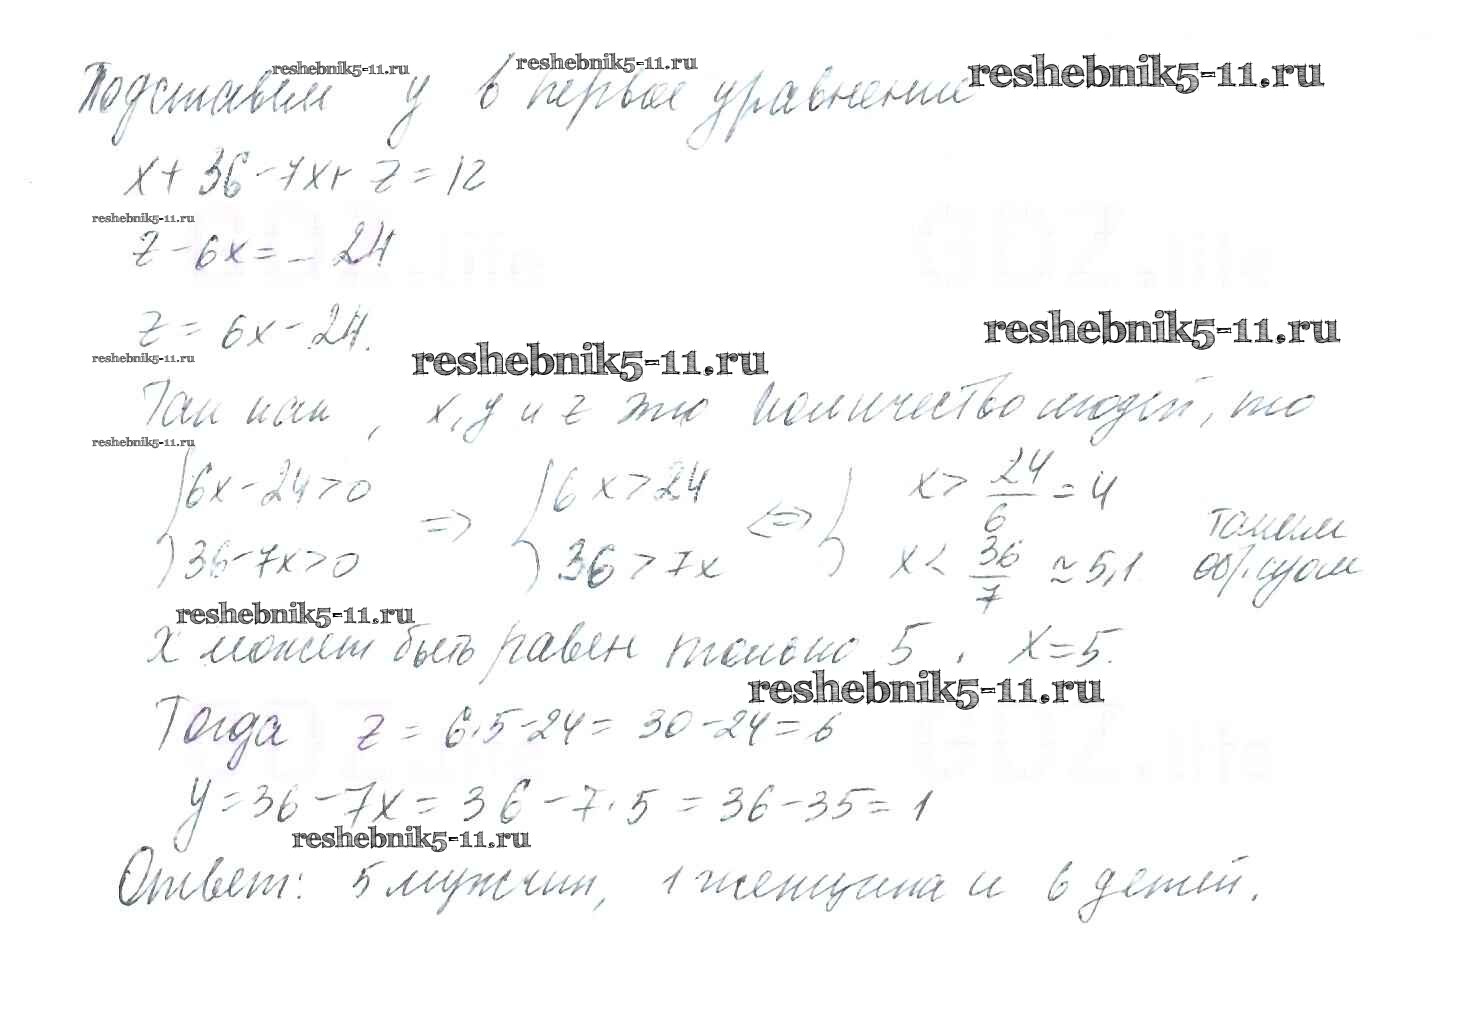 reshebnik5-11.ru reshebnik5-11.ru reshebnik5-11.ru
Подставим y в первое уравнение
x + 36 - 7x + z = 12
reshebnik5-11.ru
z - 6x = - 24
GDZ.life GDZ.life
z = 6x - 24.
reshebnik5-11.ru
reshebnik5-11.ru reshebnik5-11.ru
Так как, x, y и z это количество людей, то
reshebnik5-11.ru
{ 6x - 24 > 0 => { 6x > 24 <=> { x > 24/6 = 4
{ 36 - 7x > 0 { 36 > 7x { x < 36/7 ≈ 5,1 таким образом
reshebnik5-11.ru
x может быть равен только 5, x = 5.
reshebnik5-11.ru
Тогда z = 6·5 - 24 = 30 - 24 = 6
GDZ.life GDZ.life
y = 36 - 7x = 36 - 7·5 = 36 - 35 = 1
reshebnik5-11.ru
Ответ: 5 мужчин, 1 женщина и 6 детей.